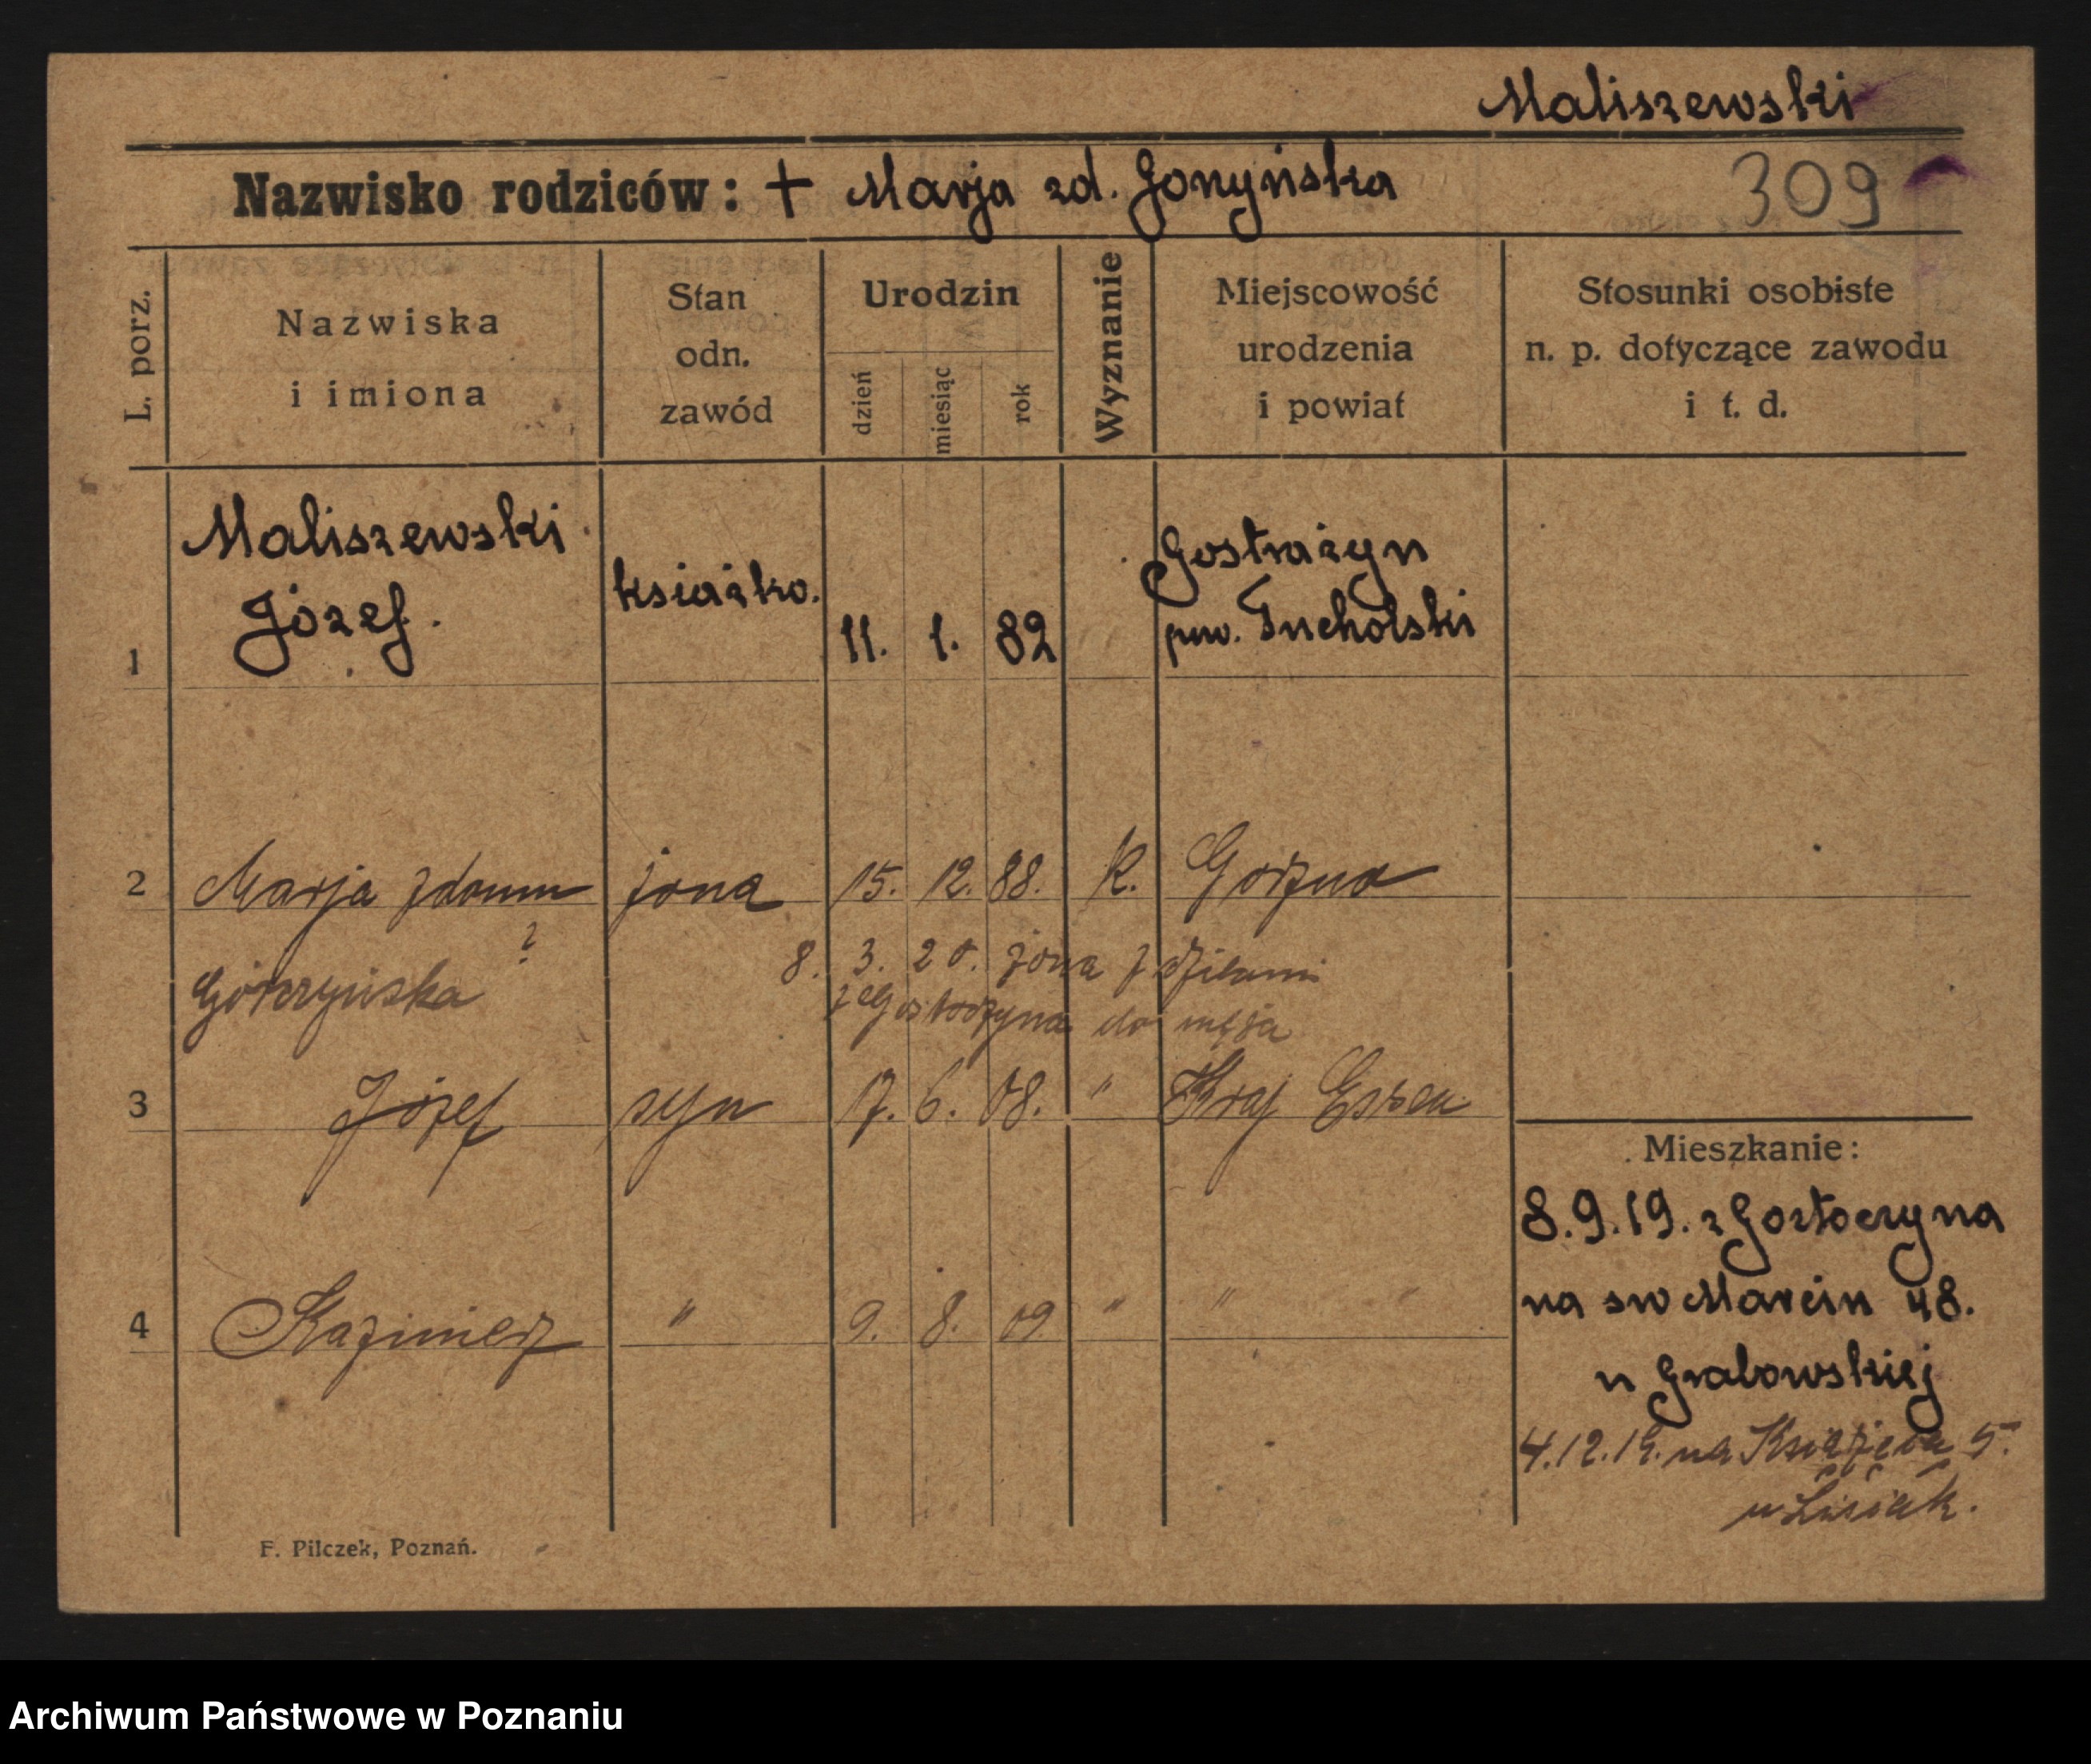 Maliszewski
Nazwisko rodziców: + Marja zd. Gonyńska
309
L. porz.
Nazwiska
i imiona
Stan
odn.
zawód
Urodzin
dzień
miesiąc
rok
Wyznanie
Miejscowość
urodzenia
i powiat
Stosunki osobiste
n. p. dotyczące zawodu
i t. d.
1
Maliszewski
Józef.
książko.
11. 1. 82
Gostrażyn
pow. Tucholski
2
Marja zdomu żona 15. 12. 88. K.
?
8. 3. 20. żona z
do męża
3 Józef syn 17. 6. 08. " Kraj Essen
Mieszkanie:
8.9.19. z Gostoczyna
na sw Marcin 48.
u Grabowskiej
4 Kazimierz " 9. 8. 09 " " "
4.12.19. na 5.
F. Pilczek, Poznań.
Archiwum Państwowe w Poznaniu